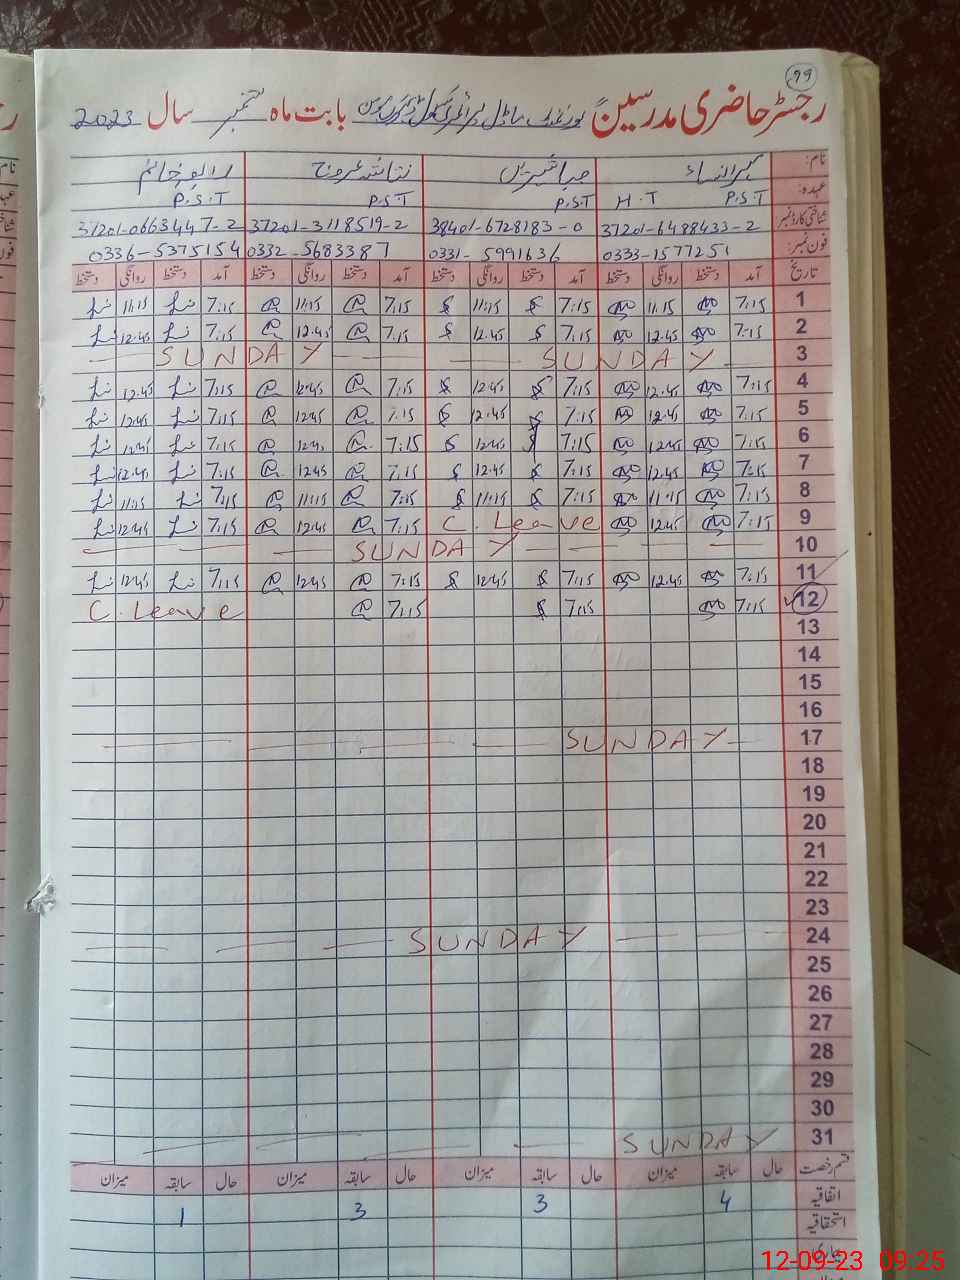 99
رجسٹر حاضری مدرسین گورنمنٹ ماڈل پرائمری سکول بابت ماہ ستمبر سال 2023
نام: مہرالنساء صبا شیریں نتاشہ عروج رابعہ خانم
عہدہ: P.S.T H.T P.S.T P.S.T P.S.T
شناختی کارڈ نمبر 37201-6488433-2 38401-6728183-0 37201-3118519-2 37201-0663447-2
فون نمبر: 0333-1577251 0331-5991636 0332-5683387 0336-5375154
تاریخ آمد دستخط روانگی دستخط آمد دستخط روانگی دستخط آمد دستخط روانگی دستخط آمد دستخط روانگی دستخط
1 7:15 11:15 7:15 11:15 7:15 11:15 7:15 11:15
2 7:15 12:45 7:15 12:45 7:15 12:45 7:15 12:45
3 SUNDAY SUNDAY
4 7:15 12:45 7:15 12:45 7:15 12:45 7:15 12:45
5 7:15 12:45 7:15 12:45 7:15 12:45 7:15 12:45
6 7:15 12:45 7:15 12:45 7:15 12:45 7:15 12:45
7 7:15 12:45 7:15 12:45 7:15 12:45 7:15 12:45
8 7:15 11:15 7:15 11:15 7:15 11:15 7:15 11:15
9 7:15 12:45 C. Leave 7:15 12:45 7:15 12:45
10 SUNDAY
11 7:15 12:45 7:15 12:45 7:15 12:45 7:15 12:45
12 7:15 7:15 7:15 C. Leave
13
14
15
16
17 SUNDAY
18
19
20
21
22
23
24 SUNDAY
25
26
27
28
29
30
31 SUNDAY
قسم رخصت حال سابقہ میزان حال سابقہ میزان حال سابقہ میزان حال سابقہ میزان
اتفاقیہ 4 3 3 1
استحقاقیہ
12-09-23 09:25